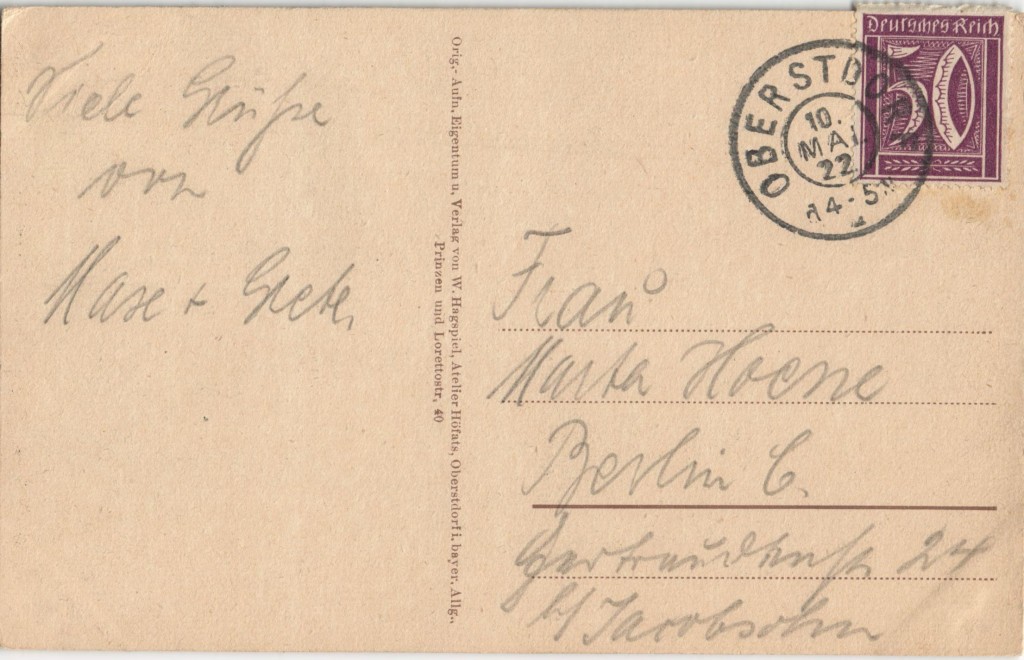 Viele Grüße
von
Mase + Grete
Orig.- Aufn. Eigentum u. Verlag von W. Hagspiel, Atelier Höfats, Oberstdorf i. bayer. Allg.,
Prinzen und Lorettostr. 40
Deutsches Reich
50
OBERSTDORF
10.
MAI
22
14-5N
Frau
Marta Hoene
Berlin C.
Gertraudtenstr 24
b/ Jacobsohn